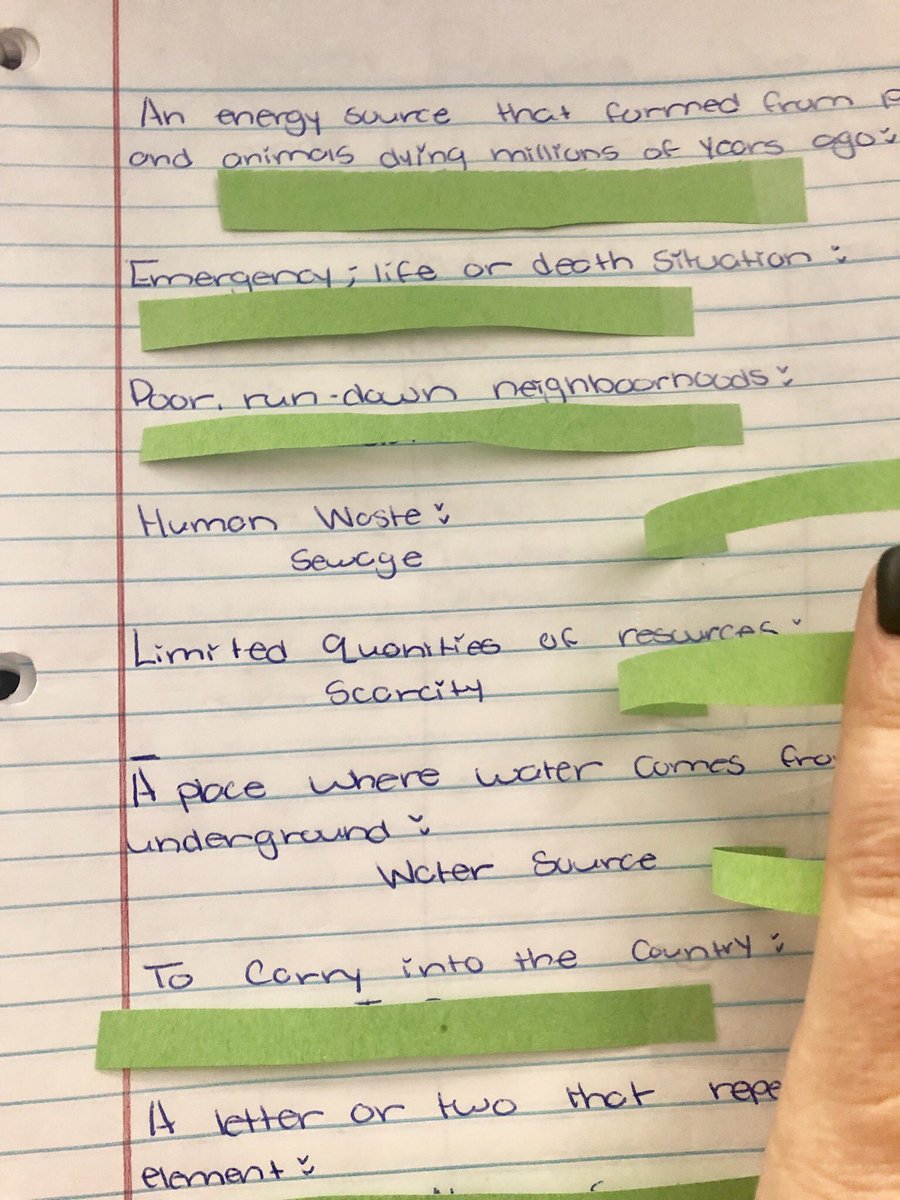 An energy source that formed from
and animals dying millions of years ago:
Emergency; life or death situation:
Poor, run-down neighboorhoods:
Human Waste:
Sewage
Limited Quanities of resources:
Scarcity
A place where water comes from
underground:
Water Source
To Carry into the Country:
A letter or two that
element: